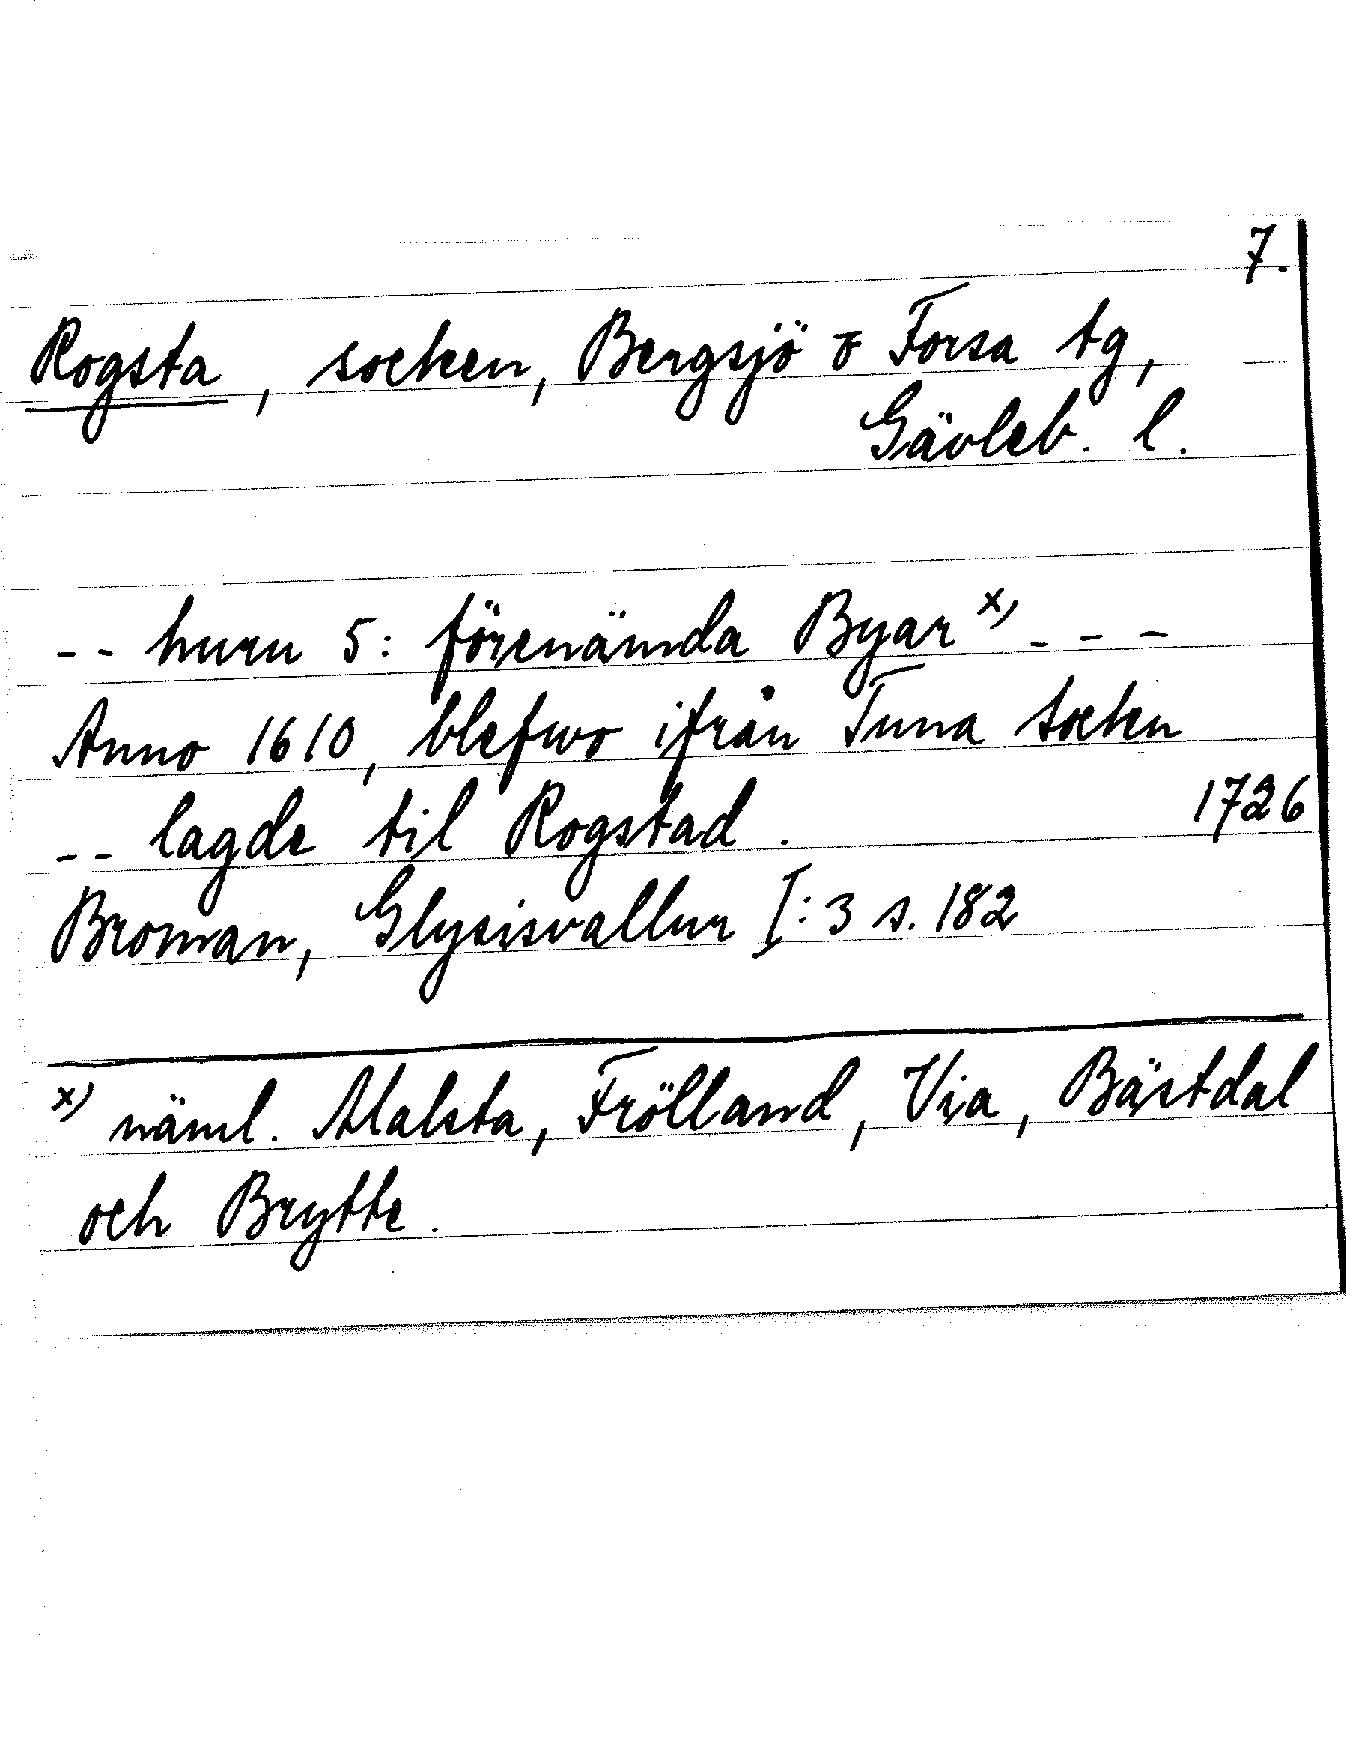 7.
Rogsta, socken, Bergsjö o Forsa tg,
Gävleb. l.
-- huru 5: förenämda Byar x) - - -
Anno 1610, blefwo ifrån Tuna Socken
-- lagde til Rogstad. 1726
Broman, Glysisvallur I:3 s. 182
x) näml. Malsta, Frölland, Via, Bästdal
och Brytte.